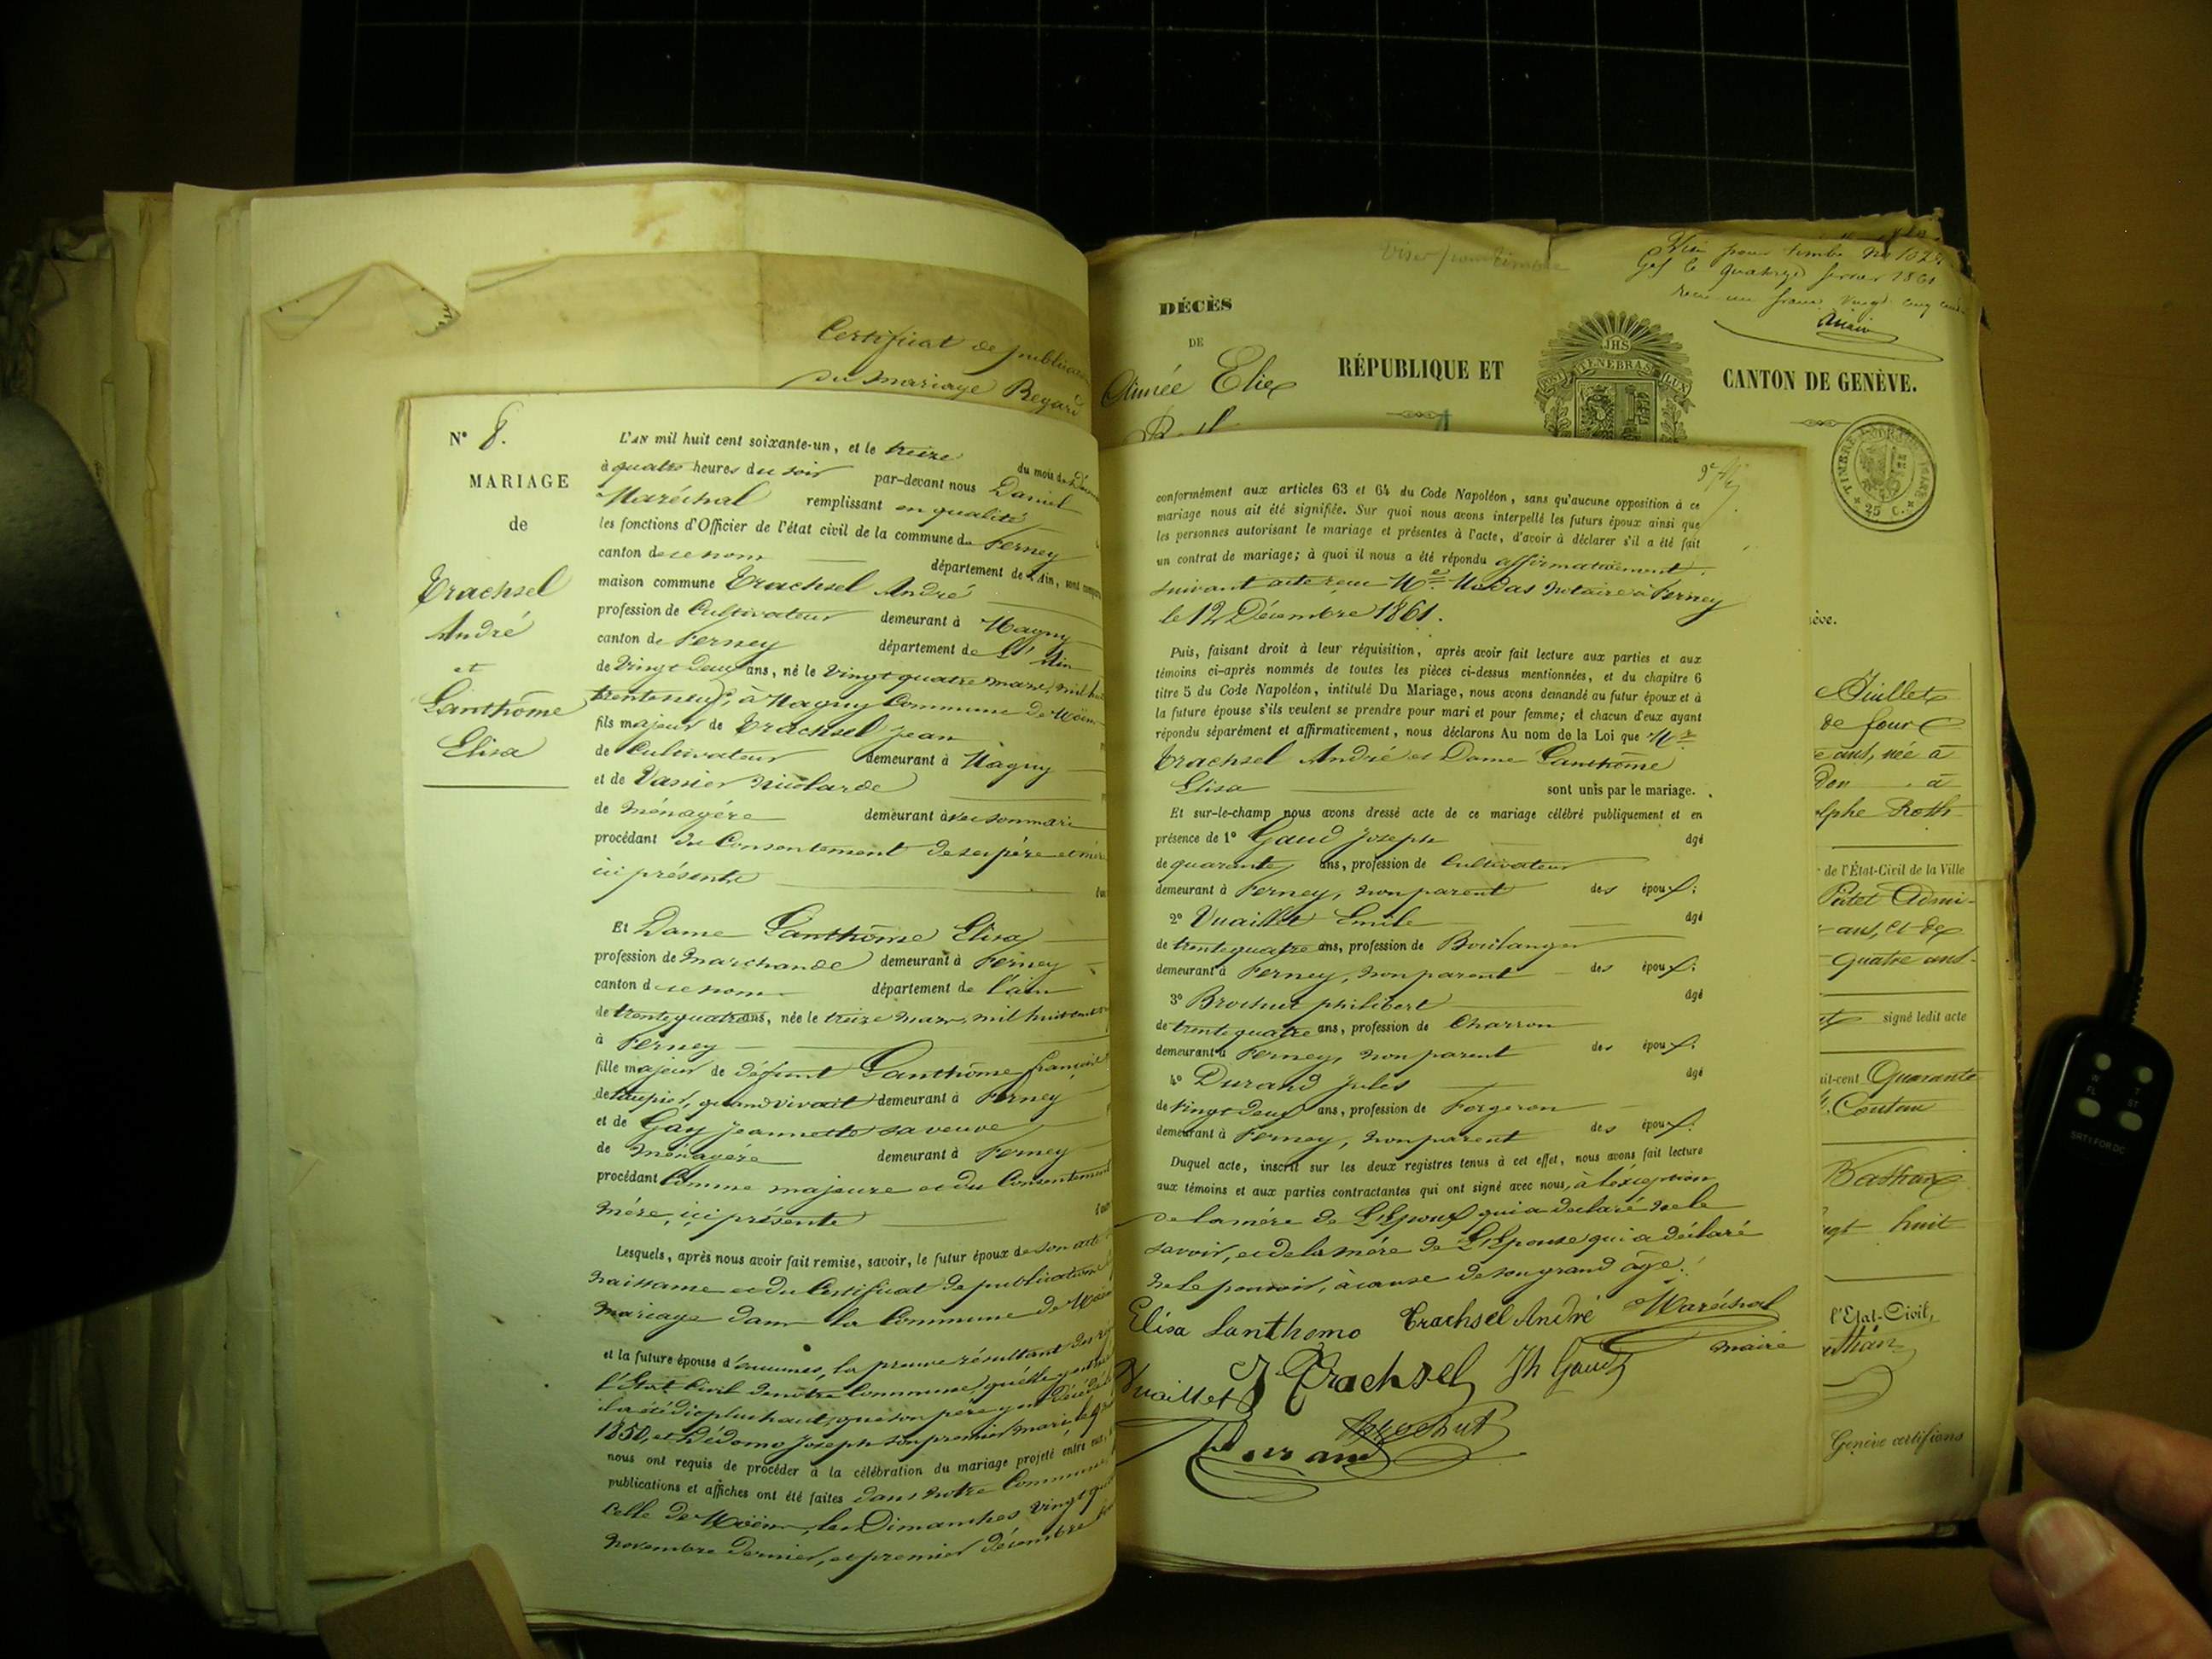 Certificat de publication
du mariage Regard
N° 8.
MARIAGE
de
Trachsel
André
et
Lanthôme
Elisa
L'AN mil huit cent soixante-un, et le treize du mois de
à quatre heures du soir par-devant nous Daniel
Maréchal remplissant en qualité
les fonctions d'Officier de l'état civil de la commune de Ferney
canton de ce nom département de l'Ain, sont
maison commune Trachsel André
profession de Cultivateur demeurant à Magny
canton de Ferney département de L'Ain
de Vingt deux ans, né le Vingt quatre mars, mil
trente neuf, à Magny Commune de Moëns
fils majeur de Trachsel Jean
de Cultivateur demeurant à Magny
et de Vassier Nicolarde
de Ménagère demeurant avec son mari
procédant du Consentement de ses père et mère
ici présents
Et Dame Lanthôme Elisa
profession de Marchande demeurant à Ferney
canton de ce nom département de l'ain
de trente quatre ans, née le treize mars, mil huit cent
à Ferney
fille majeur de défunt Lanthôme françois
de taupier, quand vivait demeurant à Ferney
et de Gay Jeannette sa veuve
de Ménagère demeurant à Ferney
procédant Comme majeure et du Consentement
mère, ici présente
Lesquels, après nous avoir fait remise, savoir, le futur époux de son acte
Naissance et du Certificat de publication
mariage dans la Commune de Moëns
et la future épouse d'aucunes, la preuve résultant des
l'Etat Civil de notre Commune, qu'elle y est
il a été dit plus haut, que son père y est décédé
1850, et Dédomo Joseph son premier mari, le
nous ont requis de procéder à la célébration du mariage projeté entre eux,
publications et affiches ont été faites dans notre Commune
celle de Moëns, les Dimanches Vingt quatre
novembre dernier, et premier décembre
viser pour timbre
Visé pour timbre
Gex le quatorze février 1861
reçu un franc vingt cinq
DÉCÈS
DE
Aimée Elie
RÉPUBLIQUE ET CANTON DE GENÈVE.
JHS
POST TENEBRAS LUX
25 C.
conformément aux articles 63 et 64 du Code Napoléon, sans qu'aucune opposition à ce
mariage nous ait été signifiée. Sur quoi nous avons interpellé les futurs époux ainsi que
les personnes autorisant le mariage et présentes à l'acte, d'avoir à déclarer s'il a été fait
un contrat de mariage; à quoi il nous a été répondu affirmativement.
suivant acte reçu Me Notaire à Ferney
le 12 Décembre 1861.
Puis, faisant droit à leur réquisition, après avoir fait lecture aux parties et aux
témoins ci-après nommés de toutes les pièces ci-dessus mentionnées, et du chapitre 6
titre 5 du Code Napoléon, intitulé Du Mariage, nous avons demandé au futur époux et à
la future épouse s'ils veulent se prendre pour mari et pour femme; et chacun d'eux ayant
répondu séparément et affirmativement, nous déclarons Au nom de la Loi que Mr
Trachsel André et Dame Lanthôme
Elisa sont unis par le mariage.
Et sur-le-champ nous avons dressé acte de ce mariage célébré publiquement et en
présence de 1° Gaud Joseph âgé
de quarante ans, profession de Cultivateur
demeurant à Ferney, non parent des époux;
2° Vuaillet Emile âgé
de trente quatre ans, profession de Boulanger
demeurant à Ferney, non parent des époux;
3° Brochut philibert âgé
de trente quatre ans, profession de Charron
demeurant à Ferney, non parent des époux;
4° Durand Jules âgé
de Vingt deux ans, profession de Forgeron
demeurant à Ferney, non parent des époux;
Duquel acte, inscrit sur les deux registres tenus à cet effet, nous avons fait lecture
aux témoins et aux parties contractantes qui ont signé avec nous, à l'éxception
de la mère de L'Epoux qui a déclaré ne le
savoir, et de la mère de L'Epouse qui a déclaré
ne le pouvoir, à cause de son grand âge.
Elisa Lanthomo Trachsel André Maréchal
maire
Vuaillet J Trachsel Jh Gaud
Brochut
Durand
Juillet
de four
ans, née à
à
Roth
de l'État-Civil de la Ville
Admi-
ans, et de
quatre ans
signé ledit acte
Quarante
Coutau
huit
l'Etat-Civil,
Genève certifions
W
T
FL
ST